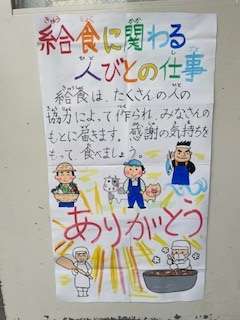 給食に関わる
人びとの仕事
給食は、たくさんの人の
協力によって作られ、みなさんの
もとに届きます。感謝の気持ちを
もって、食べましょう。
ありがとう